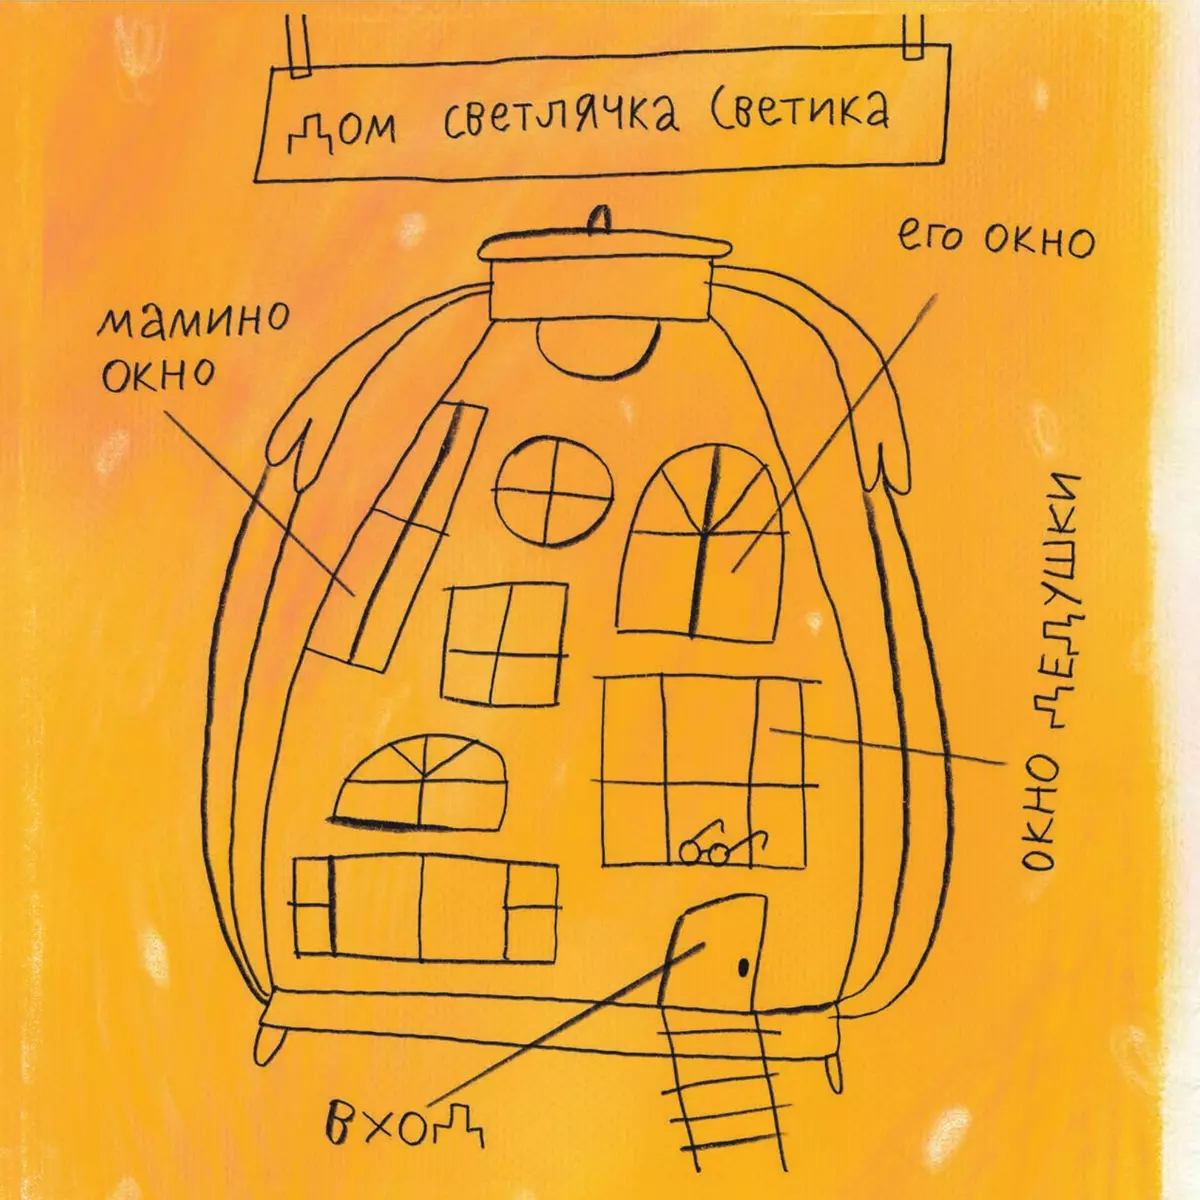 Дом светлячка Светика
его окно
мамино
окно
окно дедушки
вход